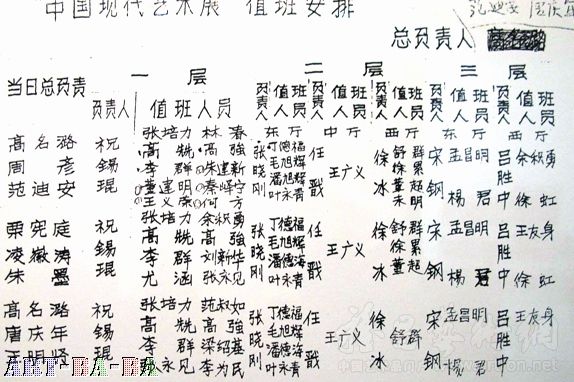 中国现代艺术展 值班安排
范迪安
总负责人
一层 二层 三层
当日总负责
负责人 值班人员 负责人 值班人员 值班人员 负责人 值班人员 负责人 值班人员 负责人 值班人员
东厅 中厅 西厅 东厅 西厅
张培力 林春
高名潞 祝 高兟 高強 张 丁德福 任 徐 舒群 宋 孟昌明 吕 余积勇
周彦 錫 李群 朱建新 晓 毛旭辉 王广义 徐累 胜
范迪安 琨 董建明 秦 刚 潘旭辉 戬 冰 董超 钢 杨君 中 徐虹
王 何方 叶永青
张培力 余积勇
栗宪庭 祝 高兟 高強 张 丁德福 任 徐 舒群 宋 孟昌明 吕 王友身
凌徽涛 錫 李群 刘新华 晓 毛旭辉 王广义 徐累 胜
朱墨 琨 尤涵 张永见 刚 潘德海 戬 冰 董超 钢 杨君 中 徐虹
叶永青
高名潞 祝 张培力 范叔如 张 丁德福 任 徐 舒群 宋 孟昌明 吕 王友身
唐庆年 錫 高兟 高強 晓 毛旭辉 王广义 胜
王明贤 琨 李群 梁绍基 刚 潘德海 戬 冰 钢 杨君 中 徐虹
张永见 叶永青
ART-BA-BA